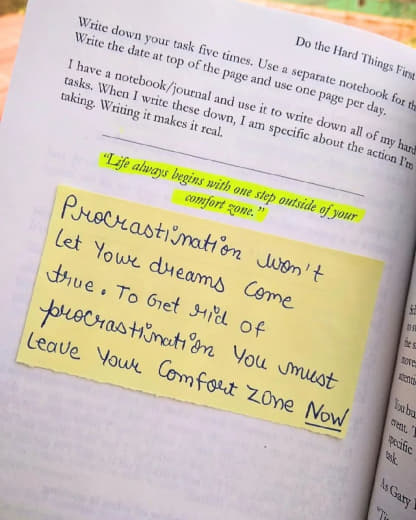 Do the Hard Things First
Write down your task five times. Use a separate notebook for
Write the date at top of the page and use one page per day.
I have a notebook/journal and use it to write down all of my hard
tasks. When I write these down, I am specific about the action I'm
taking. Writing it makes it real.
"Life always begins with one step outside of your
comfort zone."
Procrastination won't
let your dreams come
true. To Get rid of
procrastination you must
Leave your Comfort zone Now
You bu
event.
specific
task.
As Gary